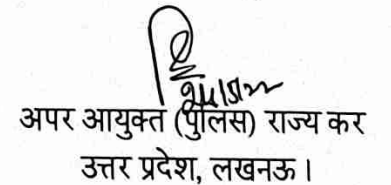 अपर आयुक्त (पुलिस) राज्य कर
उत्तर प्रदेश, लखनऊ।